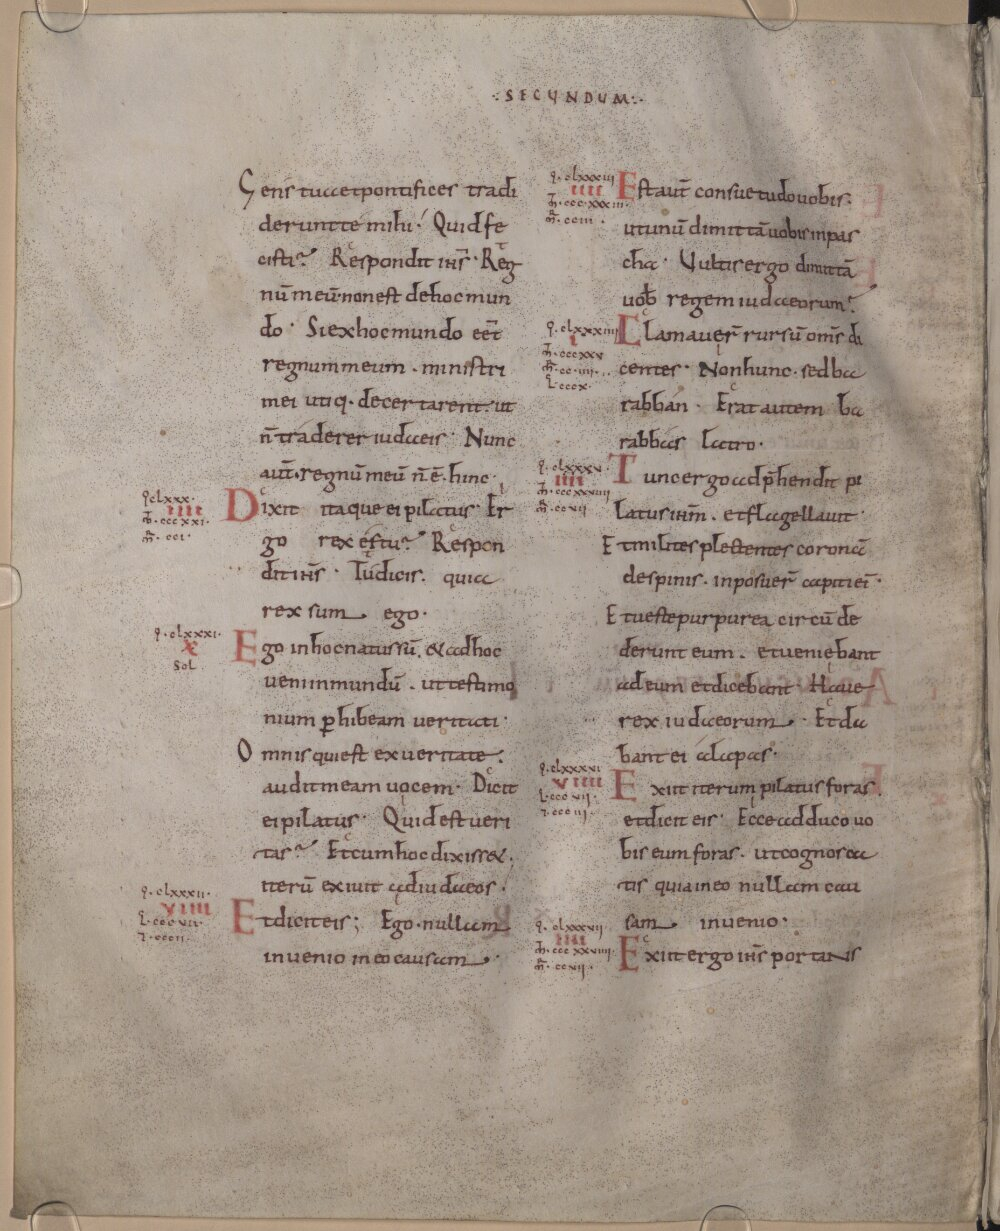 ·:SECUNDUM:·
Gens tua et pontifices tradi
derunt te mihi· Quid fe
cisti? Respondit ihs̄· Reg
nū meū· non est de hoc mun
do· Si ex hoc mundo eēt
regnum meum· ministri
mei utiq· decertarent· ut
n̄ traderer iudaeis· Nunc
aut̄· regnū meū n̄ ē· hinc·
q̄· clxxx·
IIII
m̄· cccxxi·
m̄r· cci·
Dixit itaque ei pilatus· Er
go rex es tu? Respon
dit ihs̄· Tu dicis· quia
rex sum ego·
q̄· clxxxi·
X
Sol
Ego in hoc natus sū· & ad hoc
veni in mundū· ut testimo
nium ꝑhibeam veritati·
Omnis qui est ex veritate·
audit meam vocem· Dicit
ei pilatus· Quid est veri
tas? Et cum hoc dixiss&·
iterū exivit ad iudaeos·
q̄· clxxxii·
VIIII
l̄· cccvii·
Et dicit eis; Ego nullam
invenio in eo causam·
q̄· clxxxiii
IIII
m̄· cccxxxiii·
m̄r· cciii·
Est aut̄ consuetudo vobis·
ut unū dimittā vobis in pas
cha· Vultis ergo dimittā
vob̄ regem iudaeorum?
q̄· clxxxiiii
I
m̄· cccxxv
m̄r· cciiii·
l̄· cccx·
Clamaver̄ rursū om̄s di
centes· Non hunc· sed ba
rabban· Erat autem ba
rabbas latro·
q̄· clxxxv·
IIII
m̄· cccxxviiii
m̄r· ccvii·
Tunc ergo adp̄hendit pi
latus ihm̄· et flagellavit·
Et milites plectentes coronā
de spinis· inposuer̄ capiti ei·
Et veste purpurea circū de
derunt eum· et veniebant
ad eum et dicebant Have
rex iudaeorum· Et da
bant ei alapas·
q̄· clxxxvi·
VIIII
l̄· cccvii·
Exiit iterum pilatus foras·
et dicit eis· Ecce adduco vo
bis eum foras· ut cognosca
tis quia in eo nullam cau
sam invenio·
q̄· clxxxvii
IIII
m̄· cccxxviiii·
m̄r· ccvii·
Exiit ergo ihs̄ portans